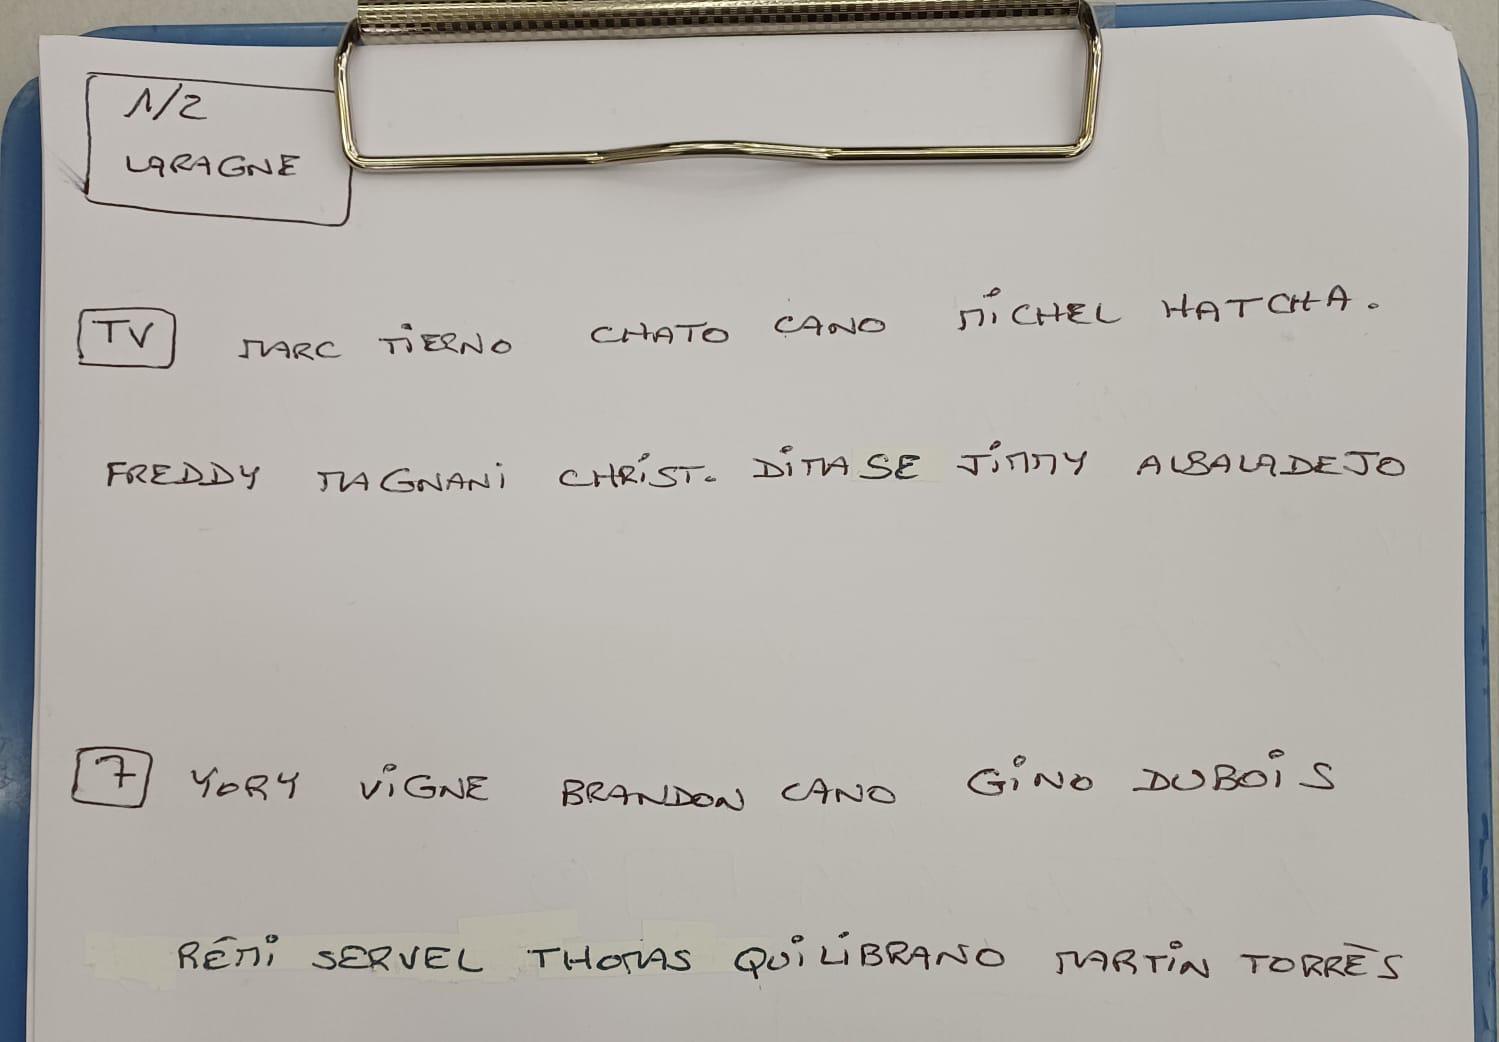 1/2
LARAGNE
TV MARC TIERNO CHATO CANO MICHEL HATCHA.
FREDDY MAGNANI CHRIST. DIMASE JIMMY ALBALADEJO
7 YORY VIGNE BRANDON CANO GINO DUBOIS
RÉMI SERVEL THOMAS QUILIBRANO MARTIN TORRÈS